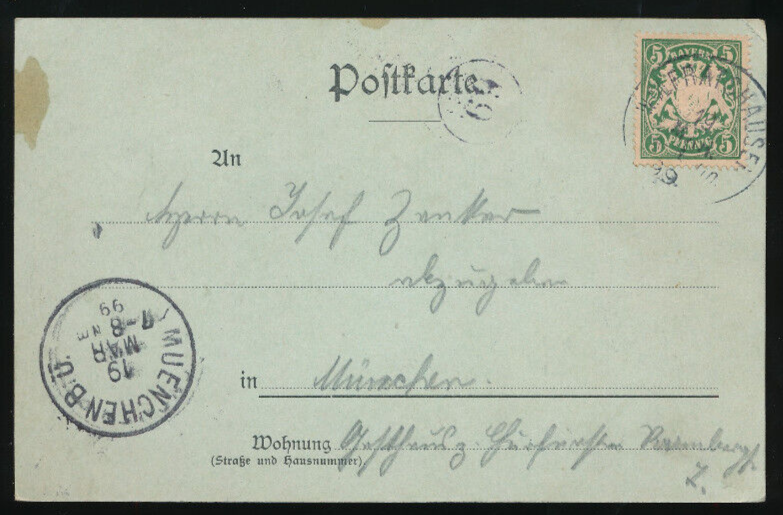 Postkarte
69
5 BAYERN 5
5 PFENNIG 5
19
99.
An
Herrn Josef Zenker
abzugeben
MUENCHEN B.Ü.
19
MAR
7-8
NM
99
in München.
Wohnung Gasthaus z.
(Straße und Hausnummer)